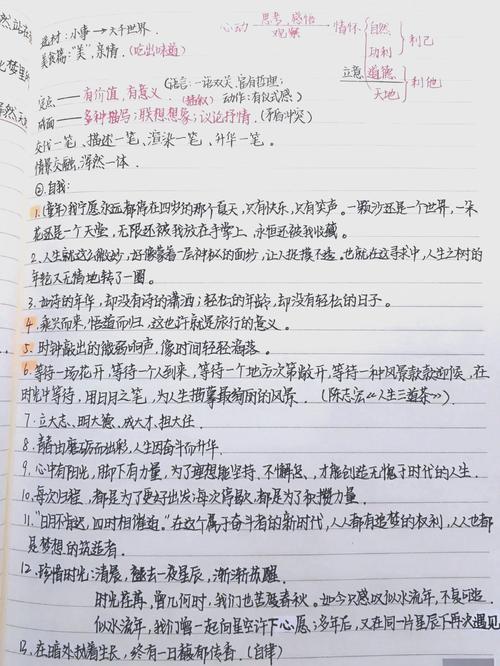 然站在
选材：小事→大千世界．
心动 思考，感悟 观察 情怀 自然 功利 利己
美食篇："美"，亲情．(吃出味道)
立意 道德 天地 利他
七梦里
(语言：一语双关，富有哲理；
亮点——有价值，有意义．(排比) 动作：有仪式感)
——多种描写；联想想象；议论抒情．(矛盾冲突)
交代一笔、描述一笔、渲染一笔、升华一笔。
情景交融，浑然一体．
④．自我：
1.(童年)我宁愿永远都停在四岁的那个夏天，只有快乐，只有笑声。一颗沙还是一个世界，一朵
花还是一个天堂，无限还被我放在手掌上，永恒还被我收藏。
2．人生就这么微妙，好像蒙着一层神秘的面纱，让人捉摸不透。也就在这寻求中，人生之树的
年轮又无情地转了一圈。
3．如诗的年华，却没有诗的潇洒；轻松的年龄，却没有轻松的日子。
4．乘兴而来，悟道而归，这也许就是旅行的意义。
5．时钟敲出的微弱响声，像时间轻轻海落。
6．等待一场花开，等待一个人到来，等待一个地方次第敞开，等待一种风景款款迎候，在
时光中等待，用日月之笔，为人生描摹最绚丽的风景．(陈志宏《人生三道茶》)
7．立大志、明大德、成大才、担大任．
8．青春由磨砺而出彩，人生因奋斗而升华．
9．心中有阳光，脚下有力量，为了理想能坚持、不懈怠、，才能创造无愧于时代的人生．
10．每次归程，都是为了更好出发；每次停歇，都是为了积攒力量．
11．"日月不肯迟，四时相催迫。"在这个属于奋斗者的新时代，人人都有追梦的权利，人人也都
是梦想的筑造者．
12．珍惜时光：清晨，褪去一夜星辰，渐渐苏醒．
时光荏苒，曾几何时，我们也苦度春秋。如今只感以似水流年，不复可追．
似水流年，我们曾一起向星空许下心愿；多年后，又在同一片星辰下再次遇见
13．在暗处执着生长，终有一日馥郁传香．(自律)